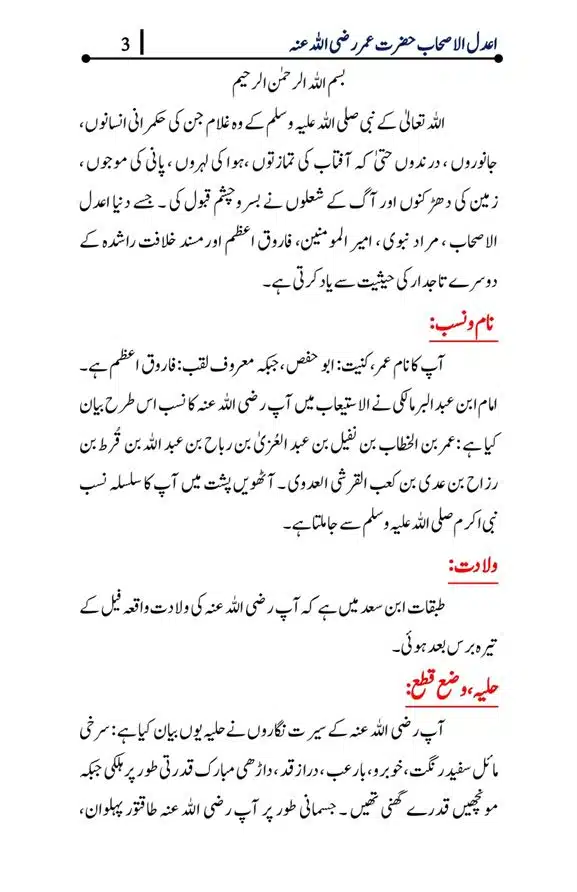 اعدل الاصحاب حضرت عمر رضی اللہ عنہ | 3
بسم اللہ الرحمٰن الرحیم
اللہ تعالیٰ کے نبی صلی اللہ علیہ وسلم کے وہ غلام جن کی حکمرانی انسانوں،
جانوروں، درندوں حتیٰ کہ آفتاب کی تمازتوں، ہوا کی لہروں، پانی کی موجوں،
زمین کی دھڑکنوں اور آگ کے شعلوں نے بسر و چشم قبول کی۔ جسے دنیا اعدل
الاصحاب، مراد نبوی، امیر المومنین، فاروق اعظم اور مسند خلافت راشدہ کے
دوسرے تاجدار کی حیثیت سے یاد کرتی ہے۔
نام و نسب:
آپ کا نام عمر، کنیت: ابو حفص، جبکہ معروف لقب: فاروق اعظم ہے۔
امام ابن عبد البر مالکی نے الاستیعاب میں آپ رضی اللہ عنہ کا نسب اس طرح بیان
کیا ہے: عمر بن الخطاب بن نفیل بن عبد العُزیٰ بن رباح بن عبد اللہ بن قُرط بن
رزاح بن عدی بن کعب القرشی العدوی۔ آٹھویں پشت میں آپ کا سلسلہ نسب
نبی اکرم صلی اللہ علیہ وسلم سے جا ملتا ہے۔
ولادت:
طبقات ابن سعد میں ہے کہ آپ رضی اللہ عنہ کی ولادت واقعہ فیل کے
تیرہ برس بعد ہوئی۔
حلیہ، وضع قطع:
آپ رضی اللہ عنہ کے سیرت نگاروں نے حلیہ یوں بیان کیا ہے: سرخی
مائل سفید رنگت، خوبرو، بارعب، دراز قد، داڑھی مبارک قدرتی طور پر ہلکی جبکہ
مونچھیں قدرے گھنی تھیں۔ جسمانی طور پر آپ رضی اللہ عنہ طاقتور پہلوان،